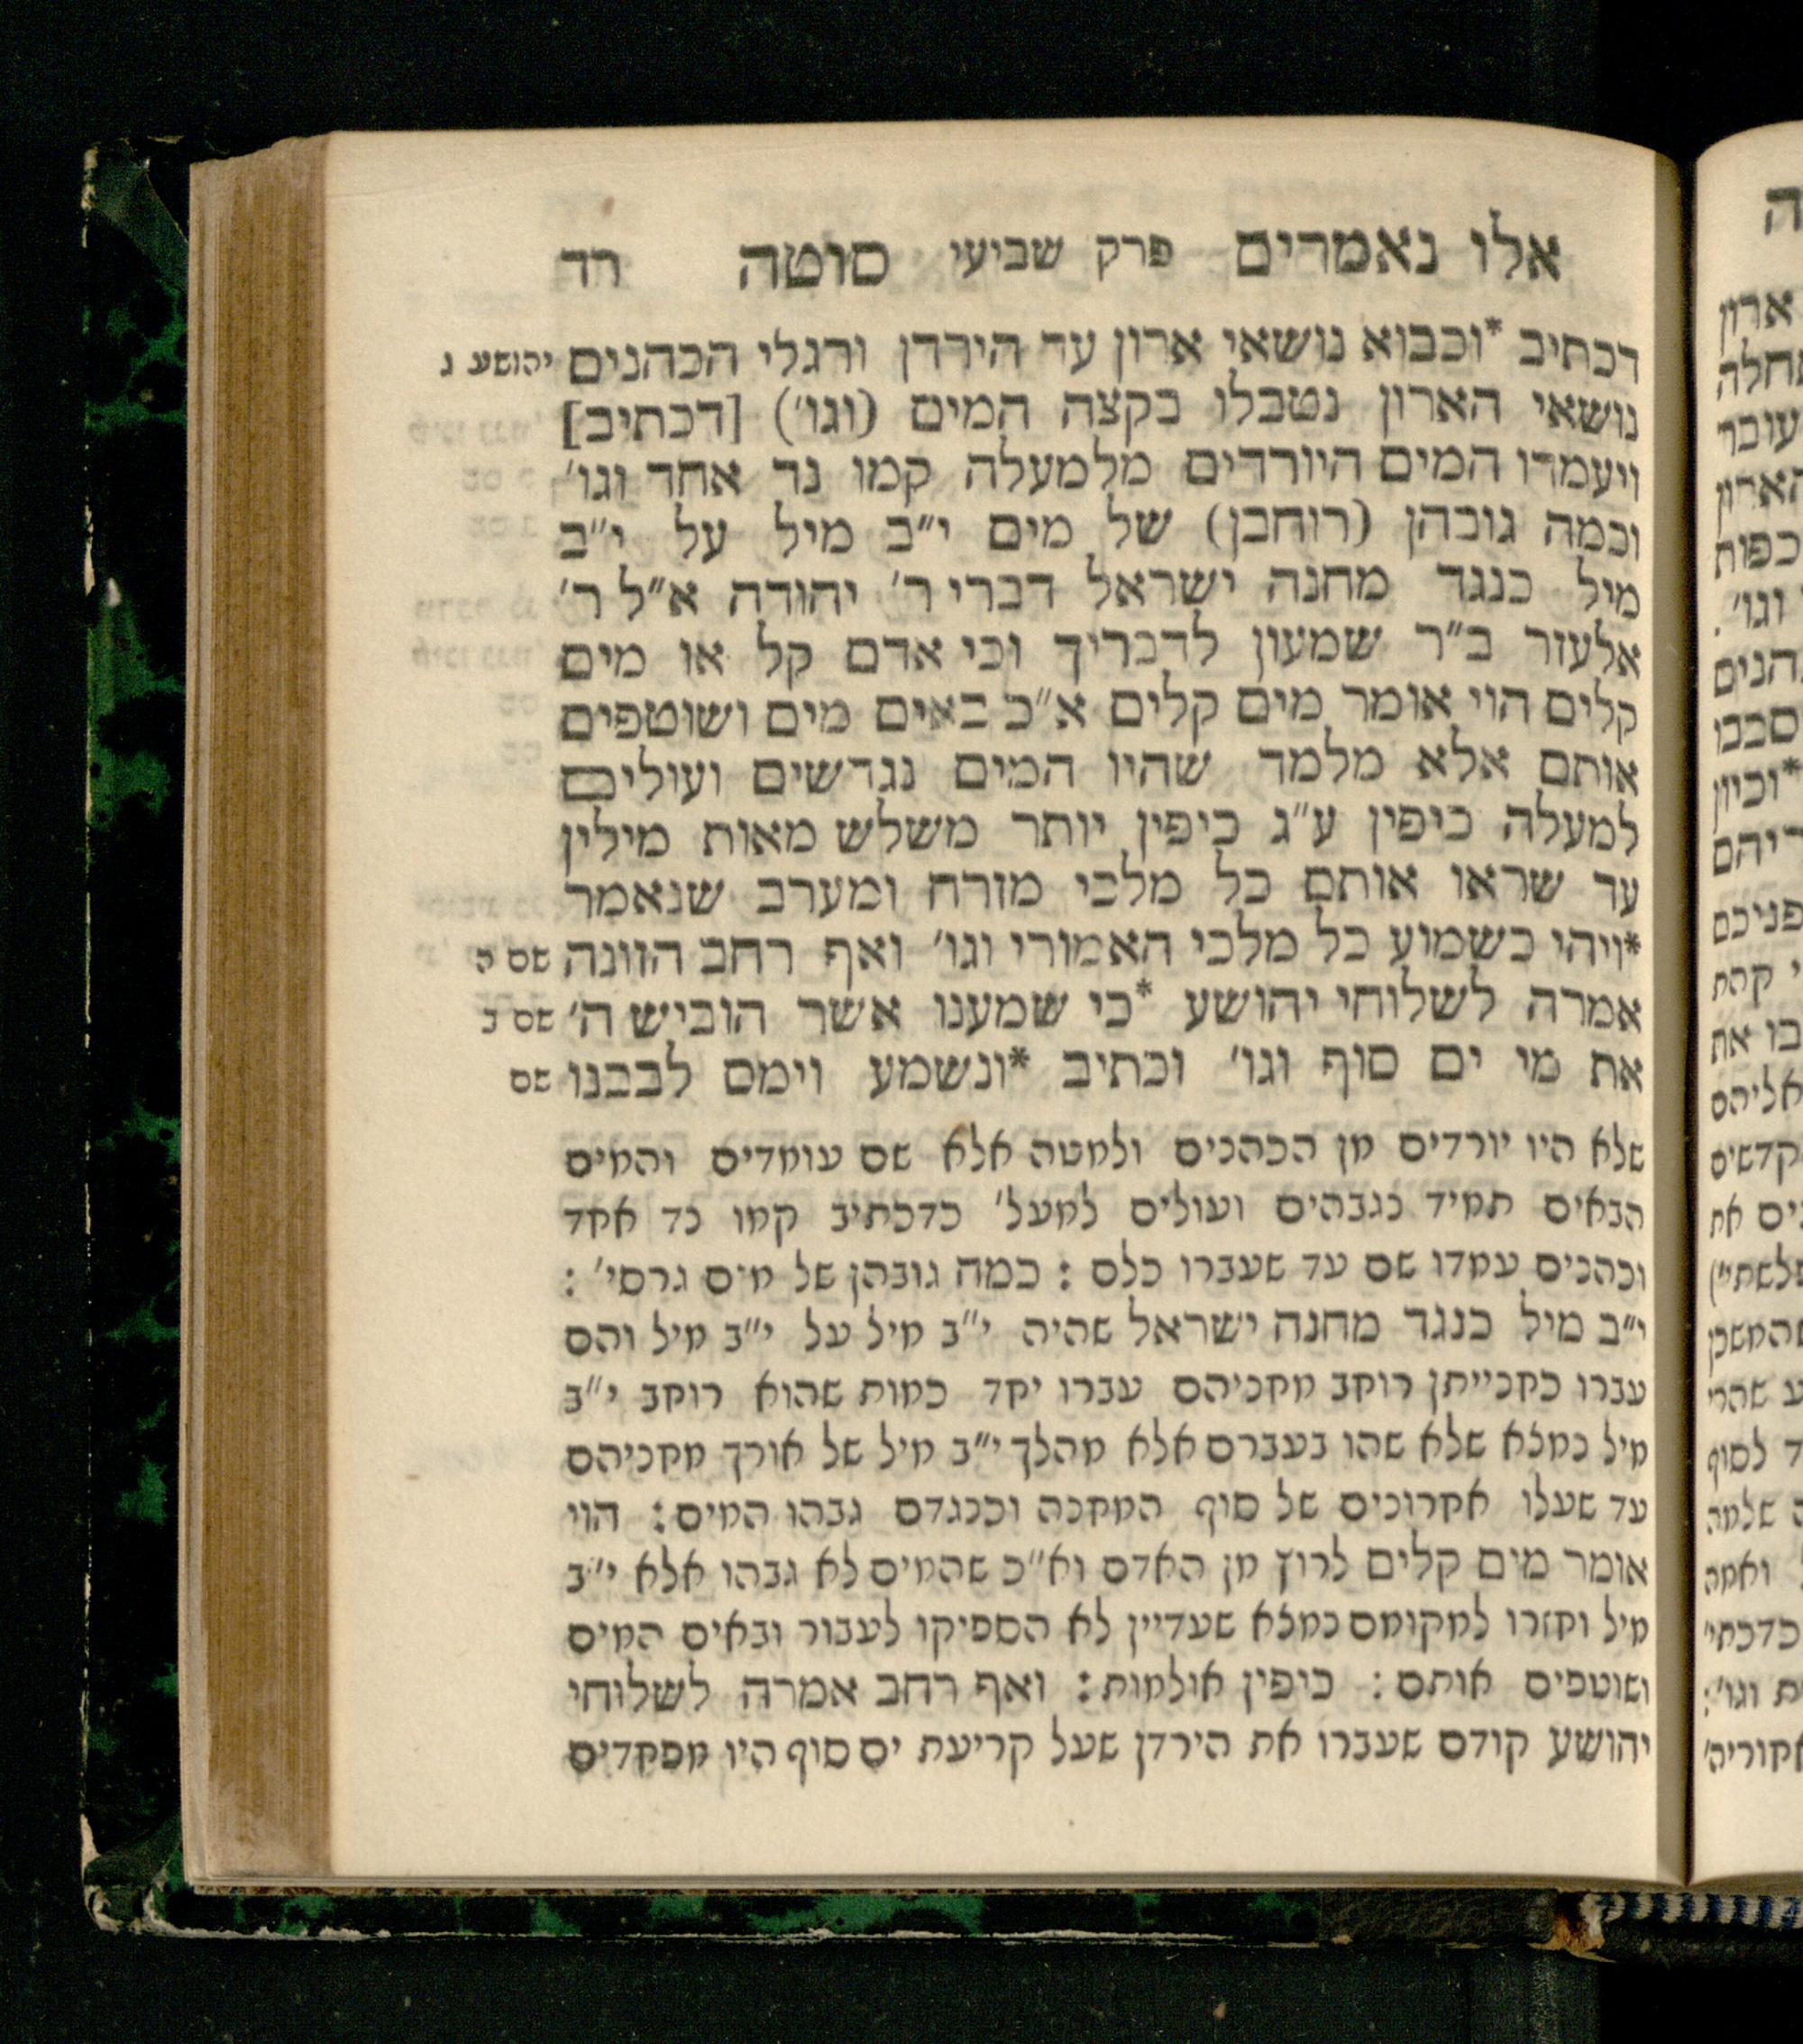 אלו נאמרים פרק שביעי סוטה רד
דכתיב *וכבוא נושאי ארון עד הירדן ורגלי הכהנים יהושע ג
נושאי הארון נטבלו בקצה המים (וגו׳) [דכתיב]
ויעמדו המים היורדים מלמעלה קמו נד אחד וגו׳
וכמה גובהן (רוחבן) של מים י״ב מיל על י״ב
מיל כנגד מחנה ישראל דברי ר׳ יהודה א״ל ר׳
אלעזר ב״ר שמעון לדבריך וכי אדם קל או מים
קלים הוי אומר מים קלים א״כ באים מים ושוטפים
אותם אלא מלמד שהיו המים נגדשים ועולים
למעלה כיפין ע״ג כיפין יותר משלש מאות מילין
עד שראו אותם כל מלכי מזרח ומערב שנאמר
*ויהי כשמוע כל מלכי האמורי וגו׳ ואף רחב הזונה שם ה
אמרה לשלוחי יהושע *כי שמענו אשר הוביש ה׳ שם ב
את מי ים סוף וגו׳ וכתיב *ונשמע וימס לבבנו שם
שלא היו יורדים מן הכהנים ולמטה אלא שם עומדים והמים
הבאים תמיד נגבהים ועולים למעל׳ כדכתיב קמו נד אחד
וכהנים עמדו שם עד שעברו כלם : כמה גובהן של מים גרסי׳ :
י״ב מיל כנגד מחנה ישראל שהיה י״ב מיל על י״ב מיל והם
עברו כחנייתן רוחב מחניהם עברו יחד כמות שהוא רוחב י״ב
מיל נמצא שלא שהו בעברם אלא מהלך י״ב מיל של אורך מחניהם
עד שעלו אחרונים של סוף המחנה וכנגדם גבהו המים : הוי
אומר מים קלים לרוץ מן האדם וא״כ שהמים לא גבהו אלא י״ב
מיל וחזרו למקומם נמצא שעדיין לא הספיקו לעבור ובאים המים
ושוטפים אותם : כיפין אולמות : ואף רחב אמרה לשלוחי
יהושע קודם שעברו את הירדן שעל קריעת ים סוף היו מפחדים